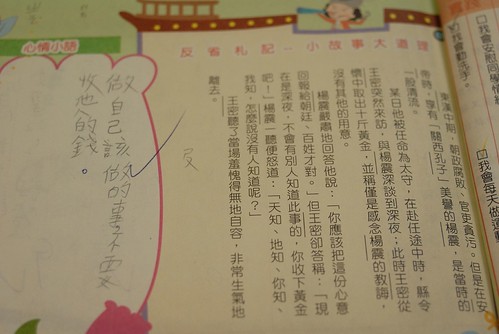 反省札記‥小故事大道理
東漢中期，朝政腐敗、官吏貪污。但是在安
帝時，享有「關西孔子」美譽的楊震，是當時的
一股清流。
某日他被任命為太守，在赴任途中時，縣令
王密突然來訪，與楊震深談到深夜；此時王密從
懷中取出十斤黃金，並稱僅是感念楊震的教誨，
沒有其他的用意。
楊震嚴肅地回答他說：「你應該把這份心意
回報給朝廷、百姓才對。」但王密卻答稱：「現
在是深夜，不會有別人知道此事的，你收下黃金
吧！」楊震一聽便怒道：「天知、地知、你知、
我知，怎麼說沒有人知道呢？」
王密聽了當場羞愧得無地自容，非常生氣地
離去。
心情小語
做自己該做的事不要
收他的錢。